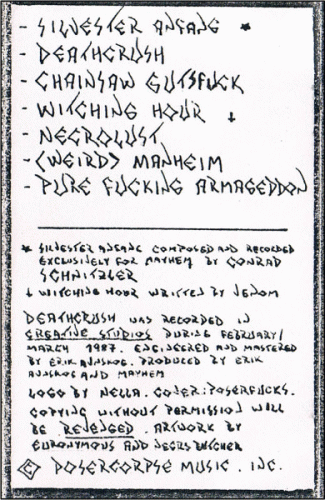 - SILVESTER ANFANG *
- DEATHCRUSH
- CHAINSAW GUTSFUCK
- WITCHING HOUR ↓
- NECROLUST
- (WEIRD) MANHEIM
- PURE FUCKING ARMAGEDDON
* SILVESTER ANFANG COMPOSED AND RECORDED
EXCLUSIVELY FOR MAYHEM BY CONRAD
SCHNITZLER
↓ WITCHING HOUR WRITTEN BY VENOM
DEATHCRUSH WAS RECORDED IN
CREATIVE STUDIOS DURING FEBRUARY/
MARCH 1987. ENGINEERED AND MASTERED
BY ERIK AVNSKOG. PRODUCED BY ERIK
AVNSKOG AND MAYHEM
LOGO BY NELLA. COVER: POSERFUCKS.
COPYING WITHOUT PERMISSION WILL
BE REVENGED. ARTWORK BY
EURONYMOUS AND NECROBUTCHER
© POSERCORPSE MUSIC. INC.